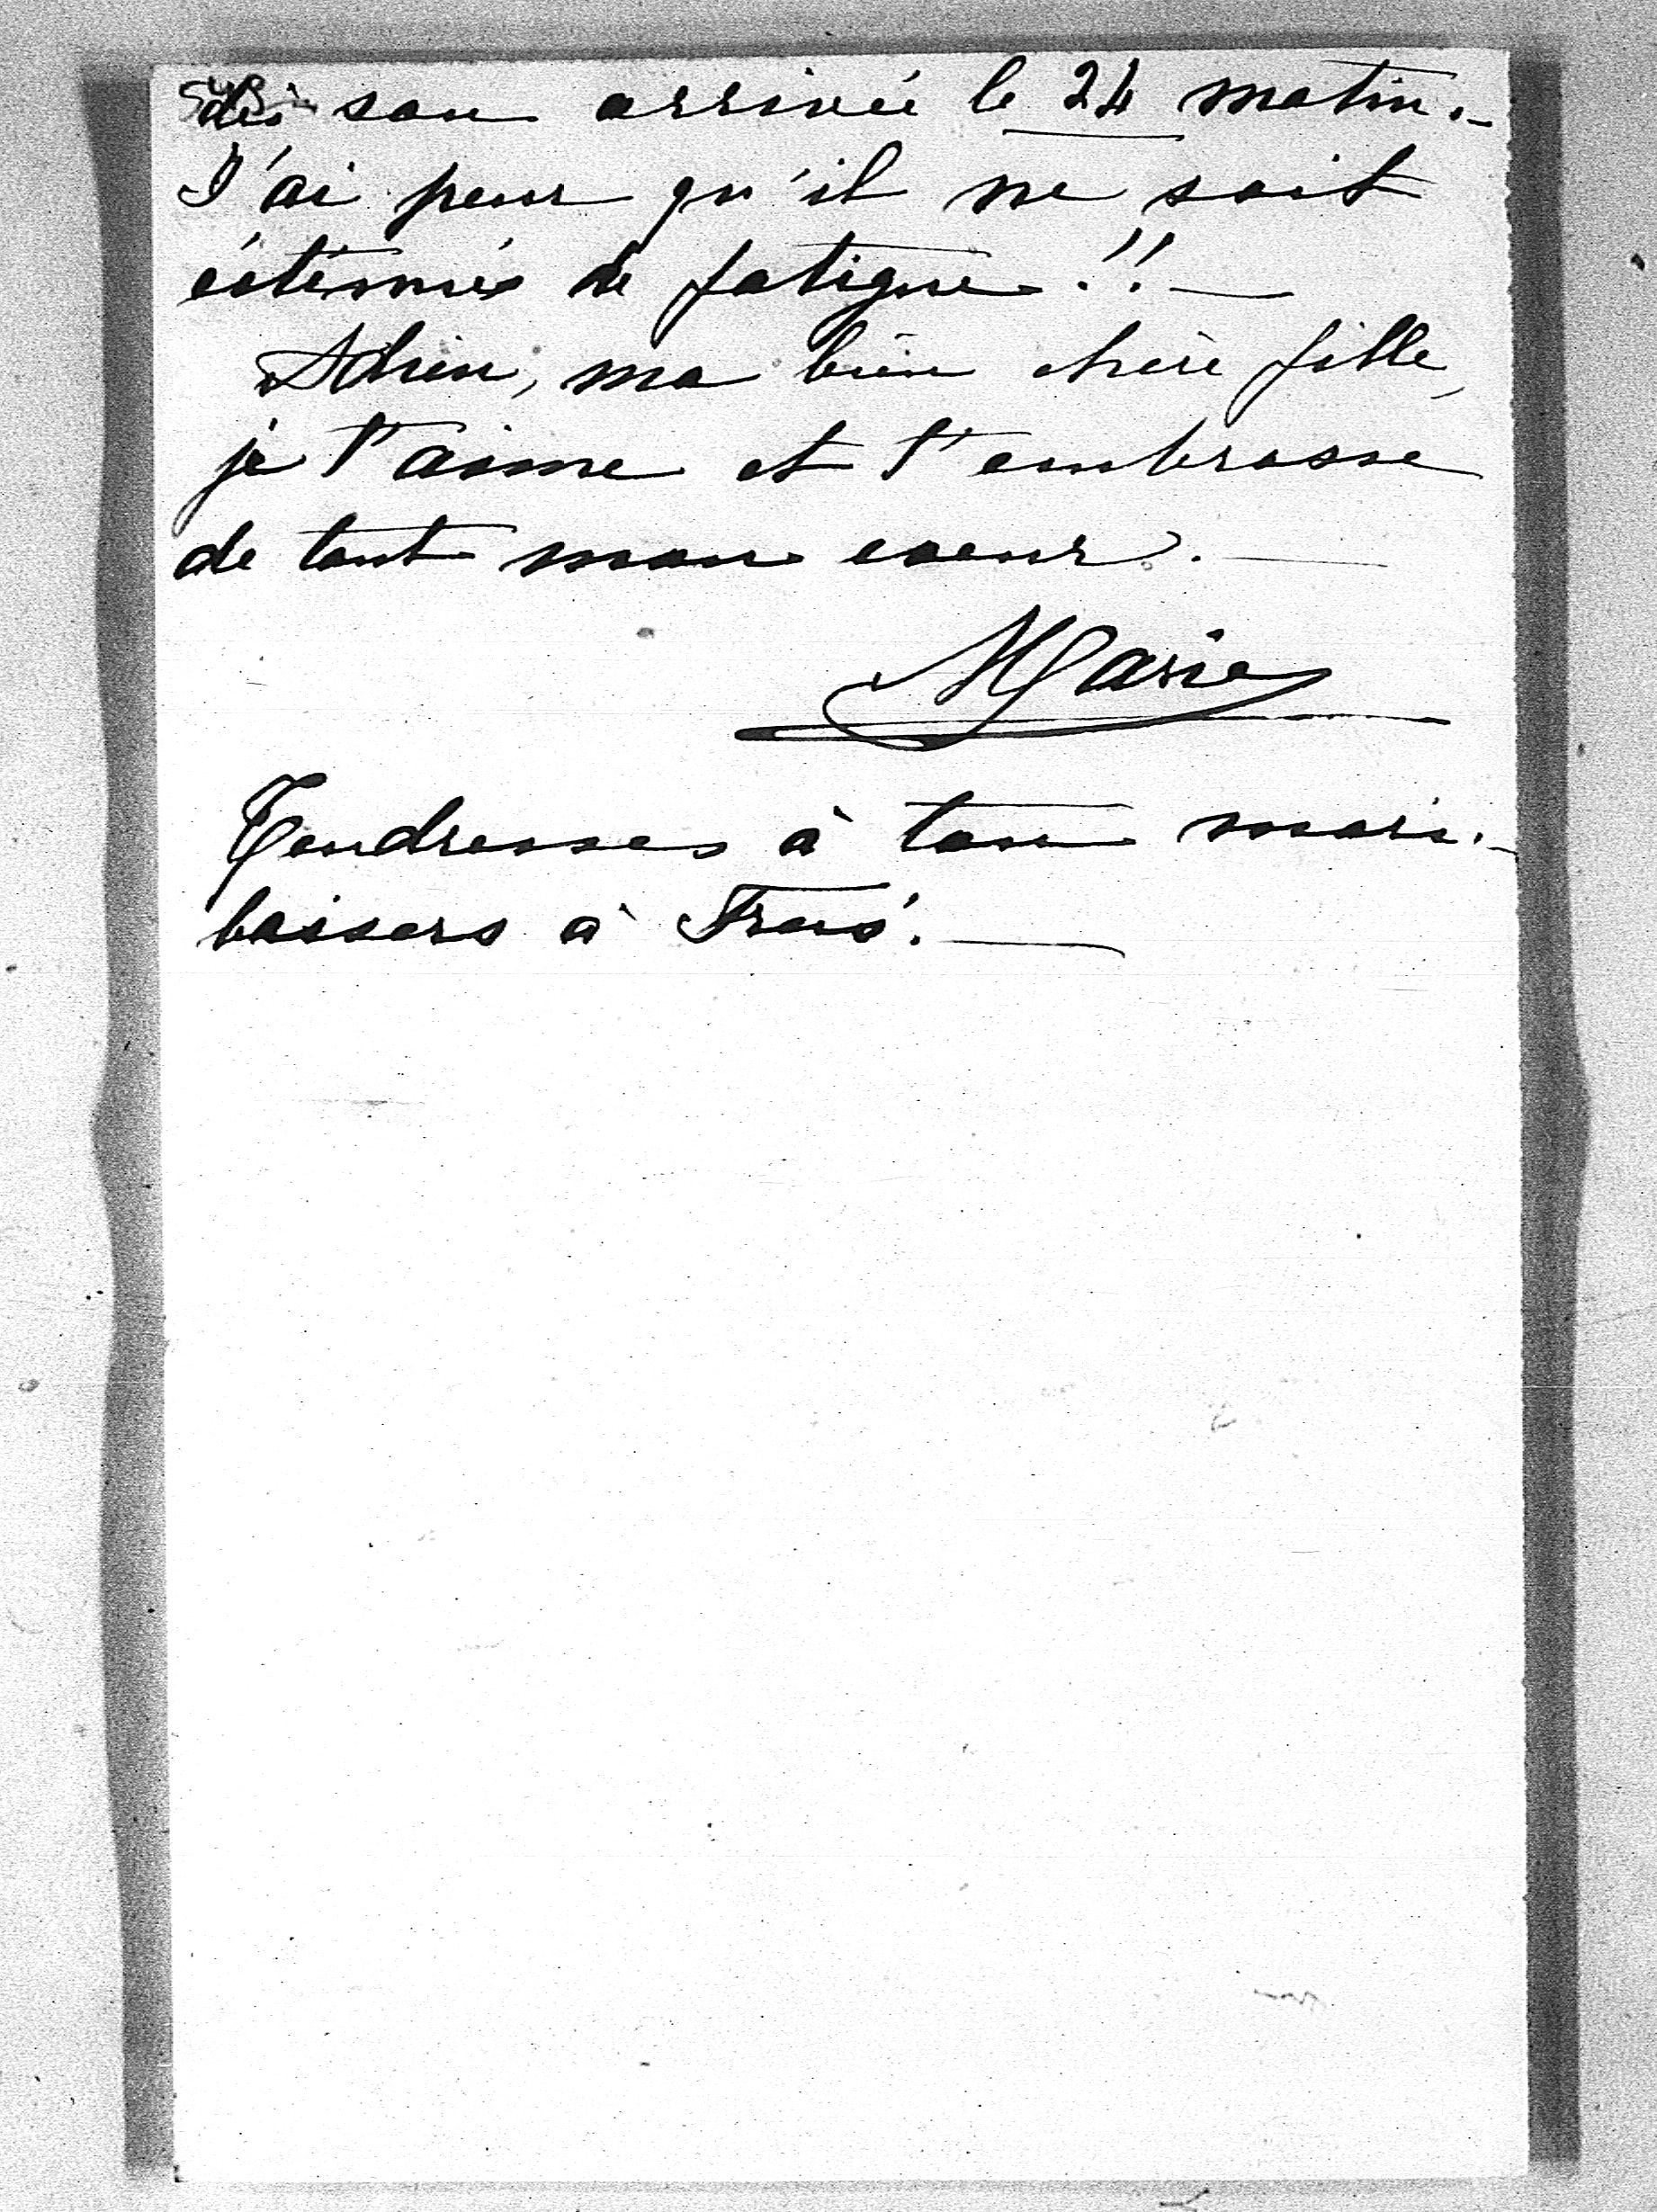 dès son arrivée le 24 matin.-
J'ai peur qu'il ne soit
éxténués de fatigue!!-
Adieu, ma bien chère fille,
je t'aime et t'embrasse
de tout mon coeur.-
Marie
Tendresses à ton mari.-
baisers à